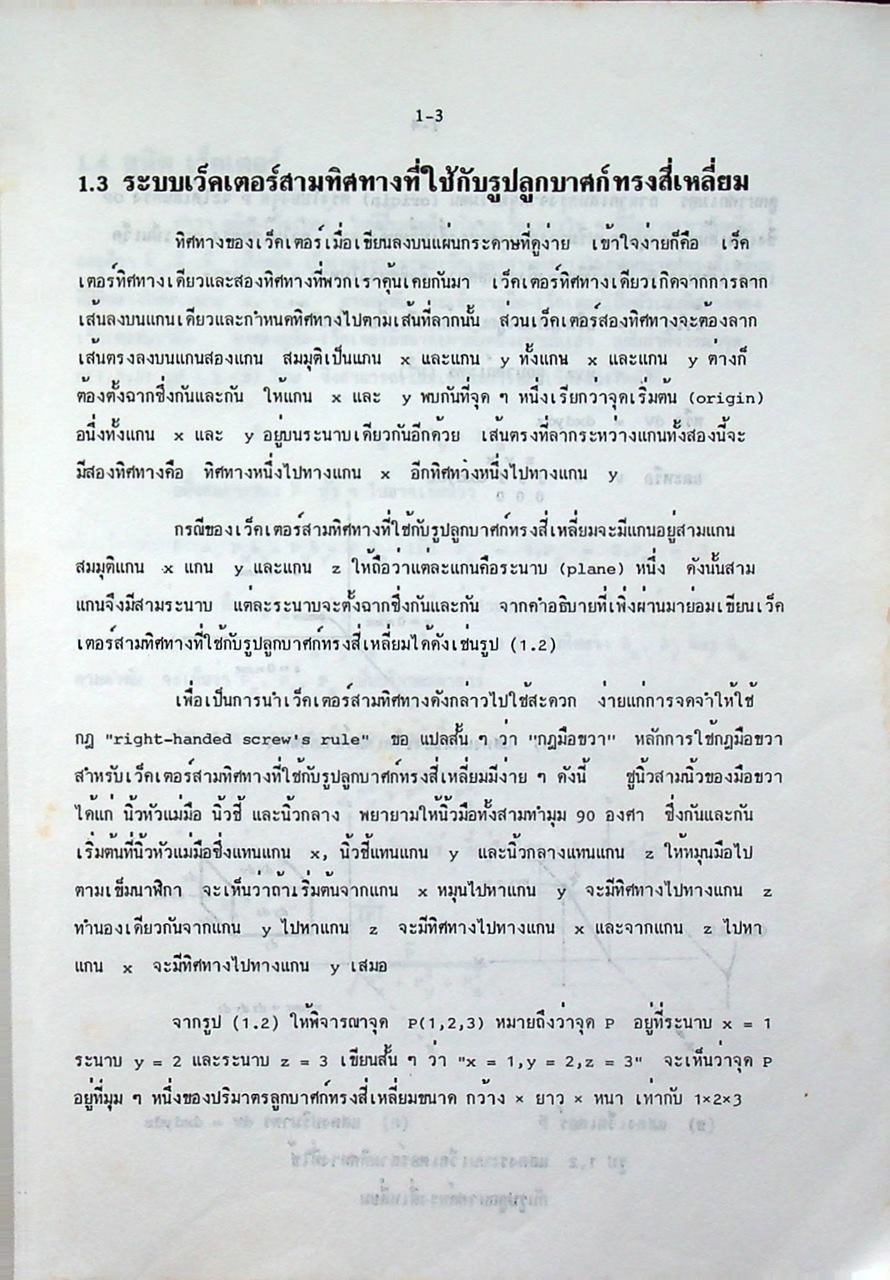 1-3
1.3 ระบบเว็คเตอร์สามทิศทางที่ใช้กับรูปลูกบาศก์ทรงสี่เหลี่ยม
ทิศทางของเว็คเตอร์เมื่อเขียนลงบนแผ่นกระดาษที่ดูง่าย เข้าใจง่ายก็คือ เว็ค
เตอร์ทิศทางเดียวและสองทิศทางที่พวกเราคุ้นเคยกันมา เว็คเตอร์ทิศทางเดียวเกิดจากการลาก
เส้นลงบนแกนเดียวและกำหนดทิศทางไปตามเส้นที่ลากนั้น ส่วนเว็คเตอร์สองทิศทางจะต้องลาก
เส้นตรงลงบนแกนสองแกน สมมุติเป็นแกน x และแกน y ทั้งแกน x และแกน y ต่างก็
ต้องตั้งฉากซึ่งกันและกัน ให้แกน x และ y พบกันที่จุด ๆ หนึ่งเรียกว่าจุดเริ่มต้น (origin)
อนึ่งทั้งแกน x และ y อยู่บนระนาบเดียวกันอีกด้วย เส้นตรงที่ลากระหว่างแกนทั้งสองนี้จะ
มีสองทิศทางคือ ทิศทางหนึ่งไปทางแกน x อีกทิศทางหนึ่งไปทางแกน y
กรณีของเว็คเตอร์สามทิศทางที่ใช้กับรูปลูกบาศก์ทรงสี่เหลี่ยมจะมีแกนอยู่สามแกน
สมมุติแกน x แกน y และแกน z ให้ถือว่าแต่ละแกนคือระนาบ (plane) หนึ่ง ดังนั้นสาม
แกนจึงมีสามระนาบ แต่ละระนาบจะตั้งฉากซึ่งกันและกัน จากคำอธิบายที่เพิ่งผ่านมาย่อมเขียนเว็ค
เตอร์สามทิศทางที่ใช้กับรูปลูกบาศก์ทรงสี่เหลี่ยมได้ดังเช่นรูป (1.2)
เพื่อเป็นการนำเว็คเตอร์สามทิศทางดังกล่าวไปใช้สะดวก ง่ายแก่การจดจำให้ใช้
กฎ "right-handed screw's rule" ขอ แปลสั้น ๆ ว่า "กฎมือขวา" หลักการใช้กฎมือขวา
สำหรับเว็คเตอร์สามทิศทางที่ใช้กับรูปลูกบาศก์ทรงสี่เหลี่ยมมีง่าย ๆ ดังนี้ ชูนิ้วสามนิ้วของมือขวา
ได้แก่ นิ้วหัวแม่มือ นิ้วชี้ และนิ้วกลาง พยายามให้นิ้วมือทั้งสามทำมุม 90 องศา ซึ่งกันและกัน
เริ่มต้นที่นิ้วหัวแม่มือซึ่งแทนแกน x, นิ้วชี้แทนแกน y และนิ้วกลางแทนแกน z ให้หมุนมือไป
ตามเข็มนาฬิกา จะเห็นว่าถ้าเริ่มต้นจากแกน x หมุนไปหาแกน y จะมีทิศทางไปทางแกน z
ทำนองเดียวกันจากแกน y ไปหาแกน z จะมีทิศทางไปทางแกน x และจากแกน z ไปหา
แกน x จะมีทิศทางไปทางแกน y เสมอ
จากรูป (1.2) ให้พิจารณาจุด P(1,2,3) หมายถึงว่าจุด P อยู่ที่ระนาบ x = 1
ระนาบ y = 2 และระนาบ z = 3 เขียนสั้น ๆ ว่า "x = 1,y = 2,z = 3" จะเห็นว่าจุด P
อยู่ที่มุม ๆ หนึ่งของปริมาตรลูกบาศก์ทรงสี่เหลี่ยมขนาด กว้าง × ยาว × หนา เท่ากับ 1×2×3